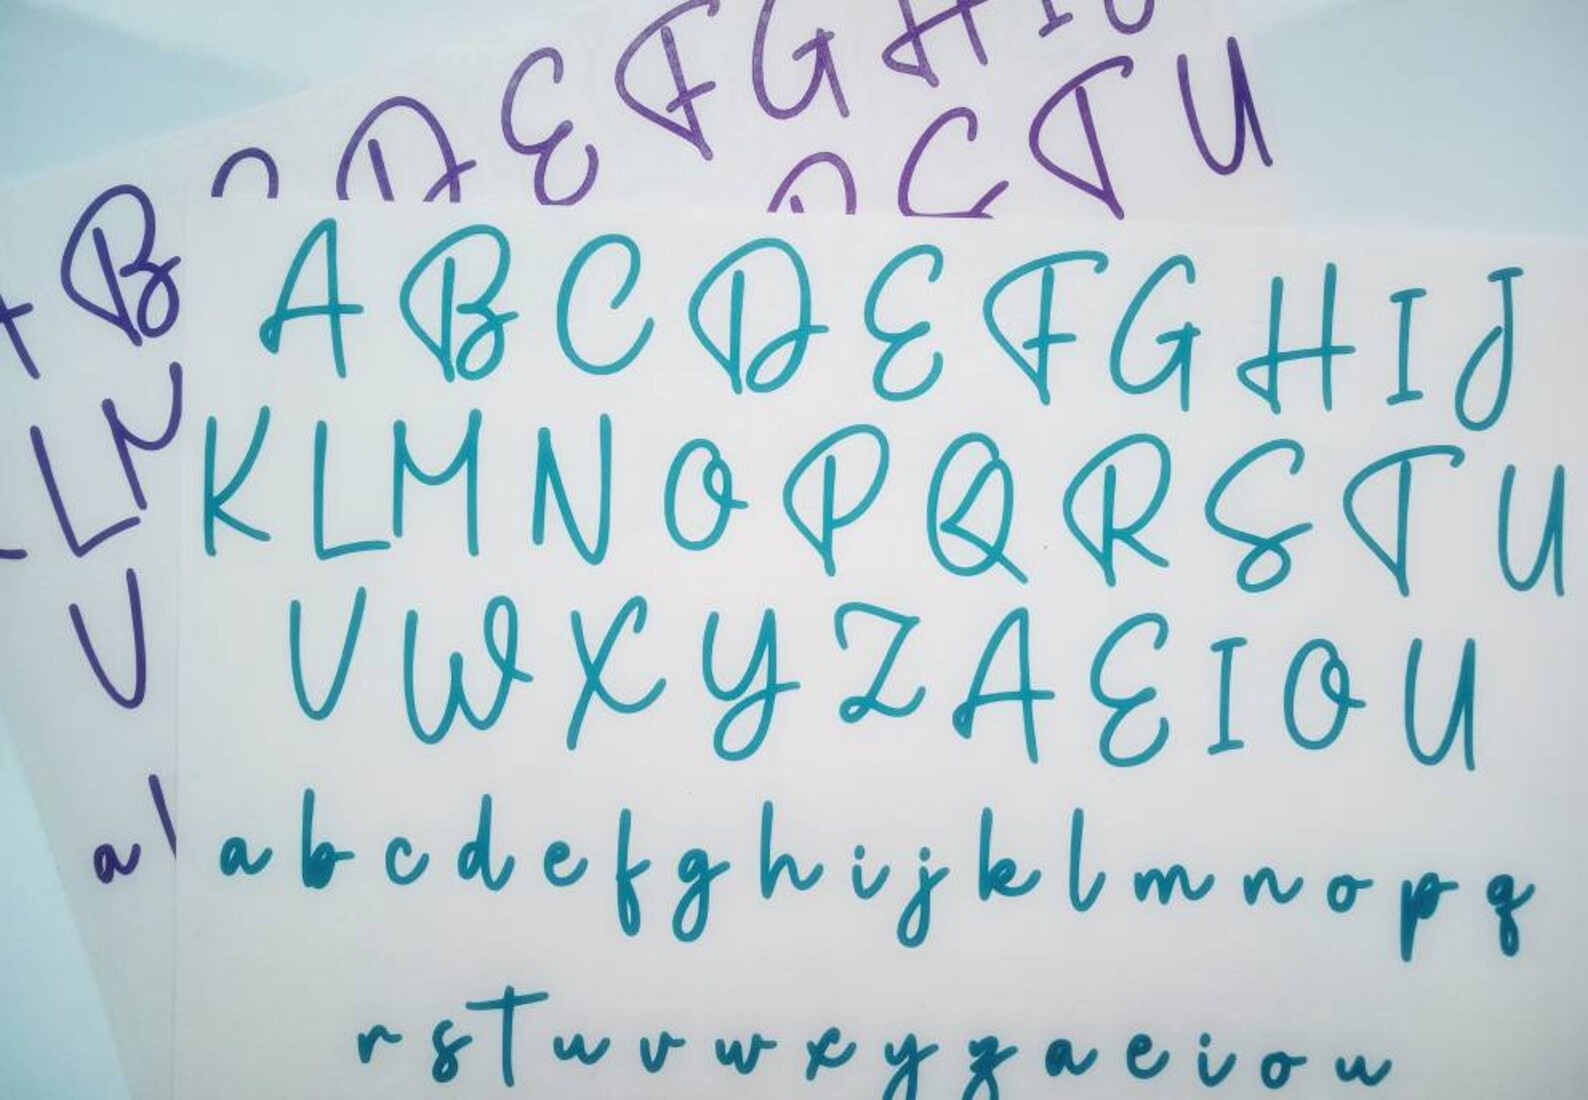 D E F G H I
C T U
B
A B C D E F G H I J
L M
K L M N O P Q R S T U
V
V W X Y Z A E I O U
a
a b c d e f g h i j k l m n o p q
r s T u v w x y z a e i o u